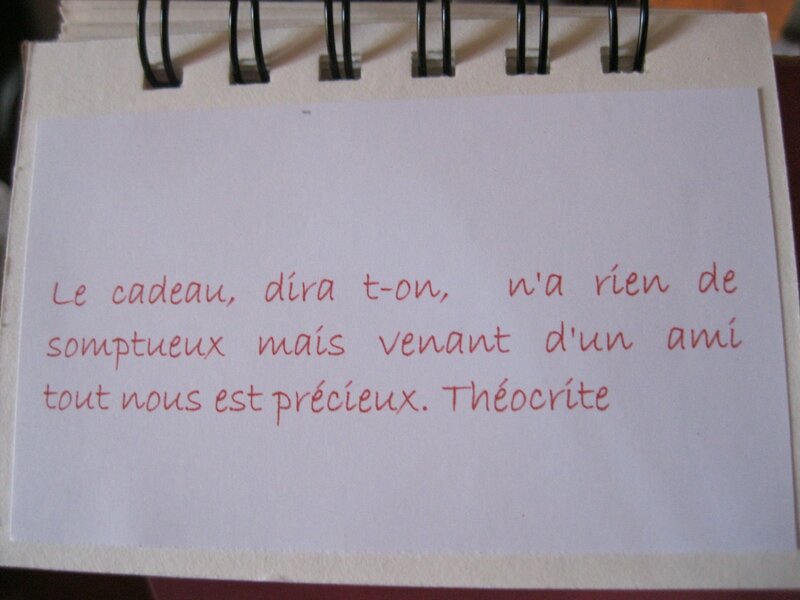 Le cadeau, dira t-on, n'a rien de
somptueux mais venant d'un ami
tout nous est précieux. Théocrite